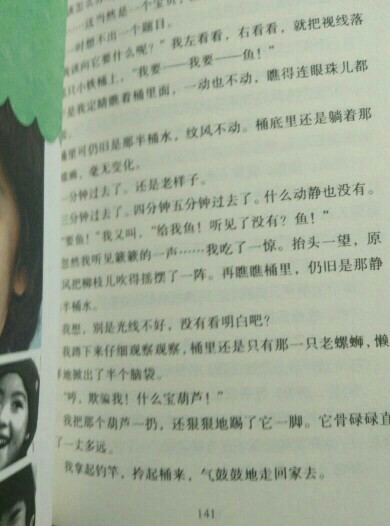 ……这当然是一个宝贝，
一时想不出一个题目。
我该问它要什么呢？”我左看看，右看看，就把视线落
只小铁桶上，“我要——我要——鱼！”
是我定睛瞧着桶里面，一动也不动，瞧得连眼珠儿都
桶里可仍旧是那半桶水，纹风不动。桶底里还是躺着那
螺蛳，毫无变化。
分钟过去了。还是老样子。
三分钟过去了。四分钟五分钟过去了。什么动静也没有。
“要鱼！”我又叫，“给我鱼！听见了没有？鱼！”
忽然我听见簌簌的一声……我吃了一惊。抬头一望，原
风把柳枝儿吹得摇摆了一阵。再瞧瞧桶里，仍旧是那静
半桶水。
我想，别是光线不好，没有看明白吧？
我蹲下来仔细观察观察，桶里还是只有那一只老螺蛳，懒
洋地掀出了半个脑袋。
“哼，欺骗我！什么宝葫芦！”
我把那个葫芦一扔，还狠狠地踢了它一脚。它骨碌碌直
了一丈多远。
我拿起钓竿，拎起桶来，气鼓鼓地走回家去。
141